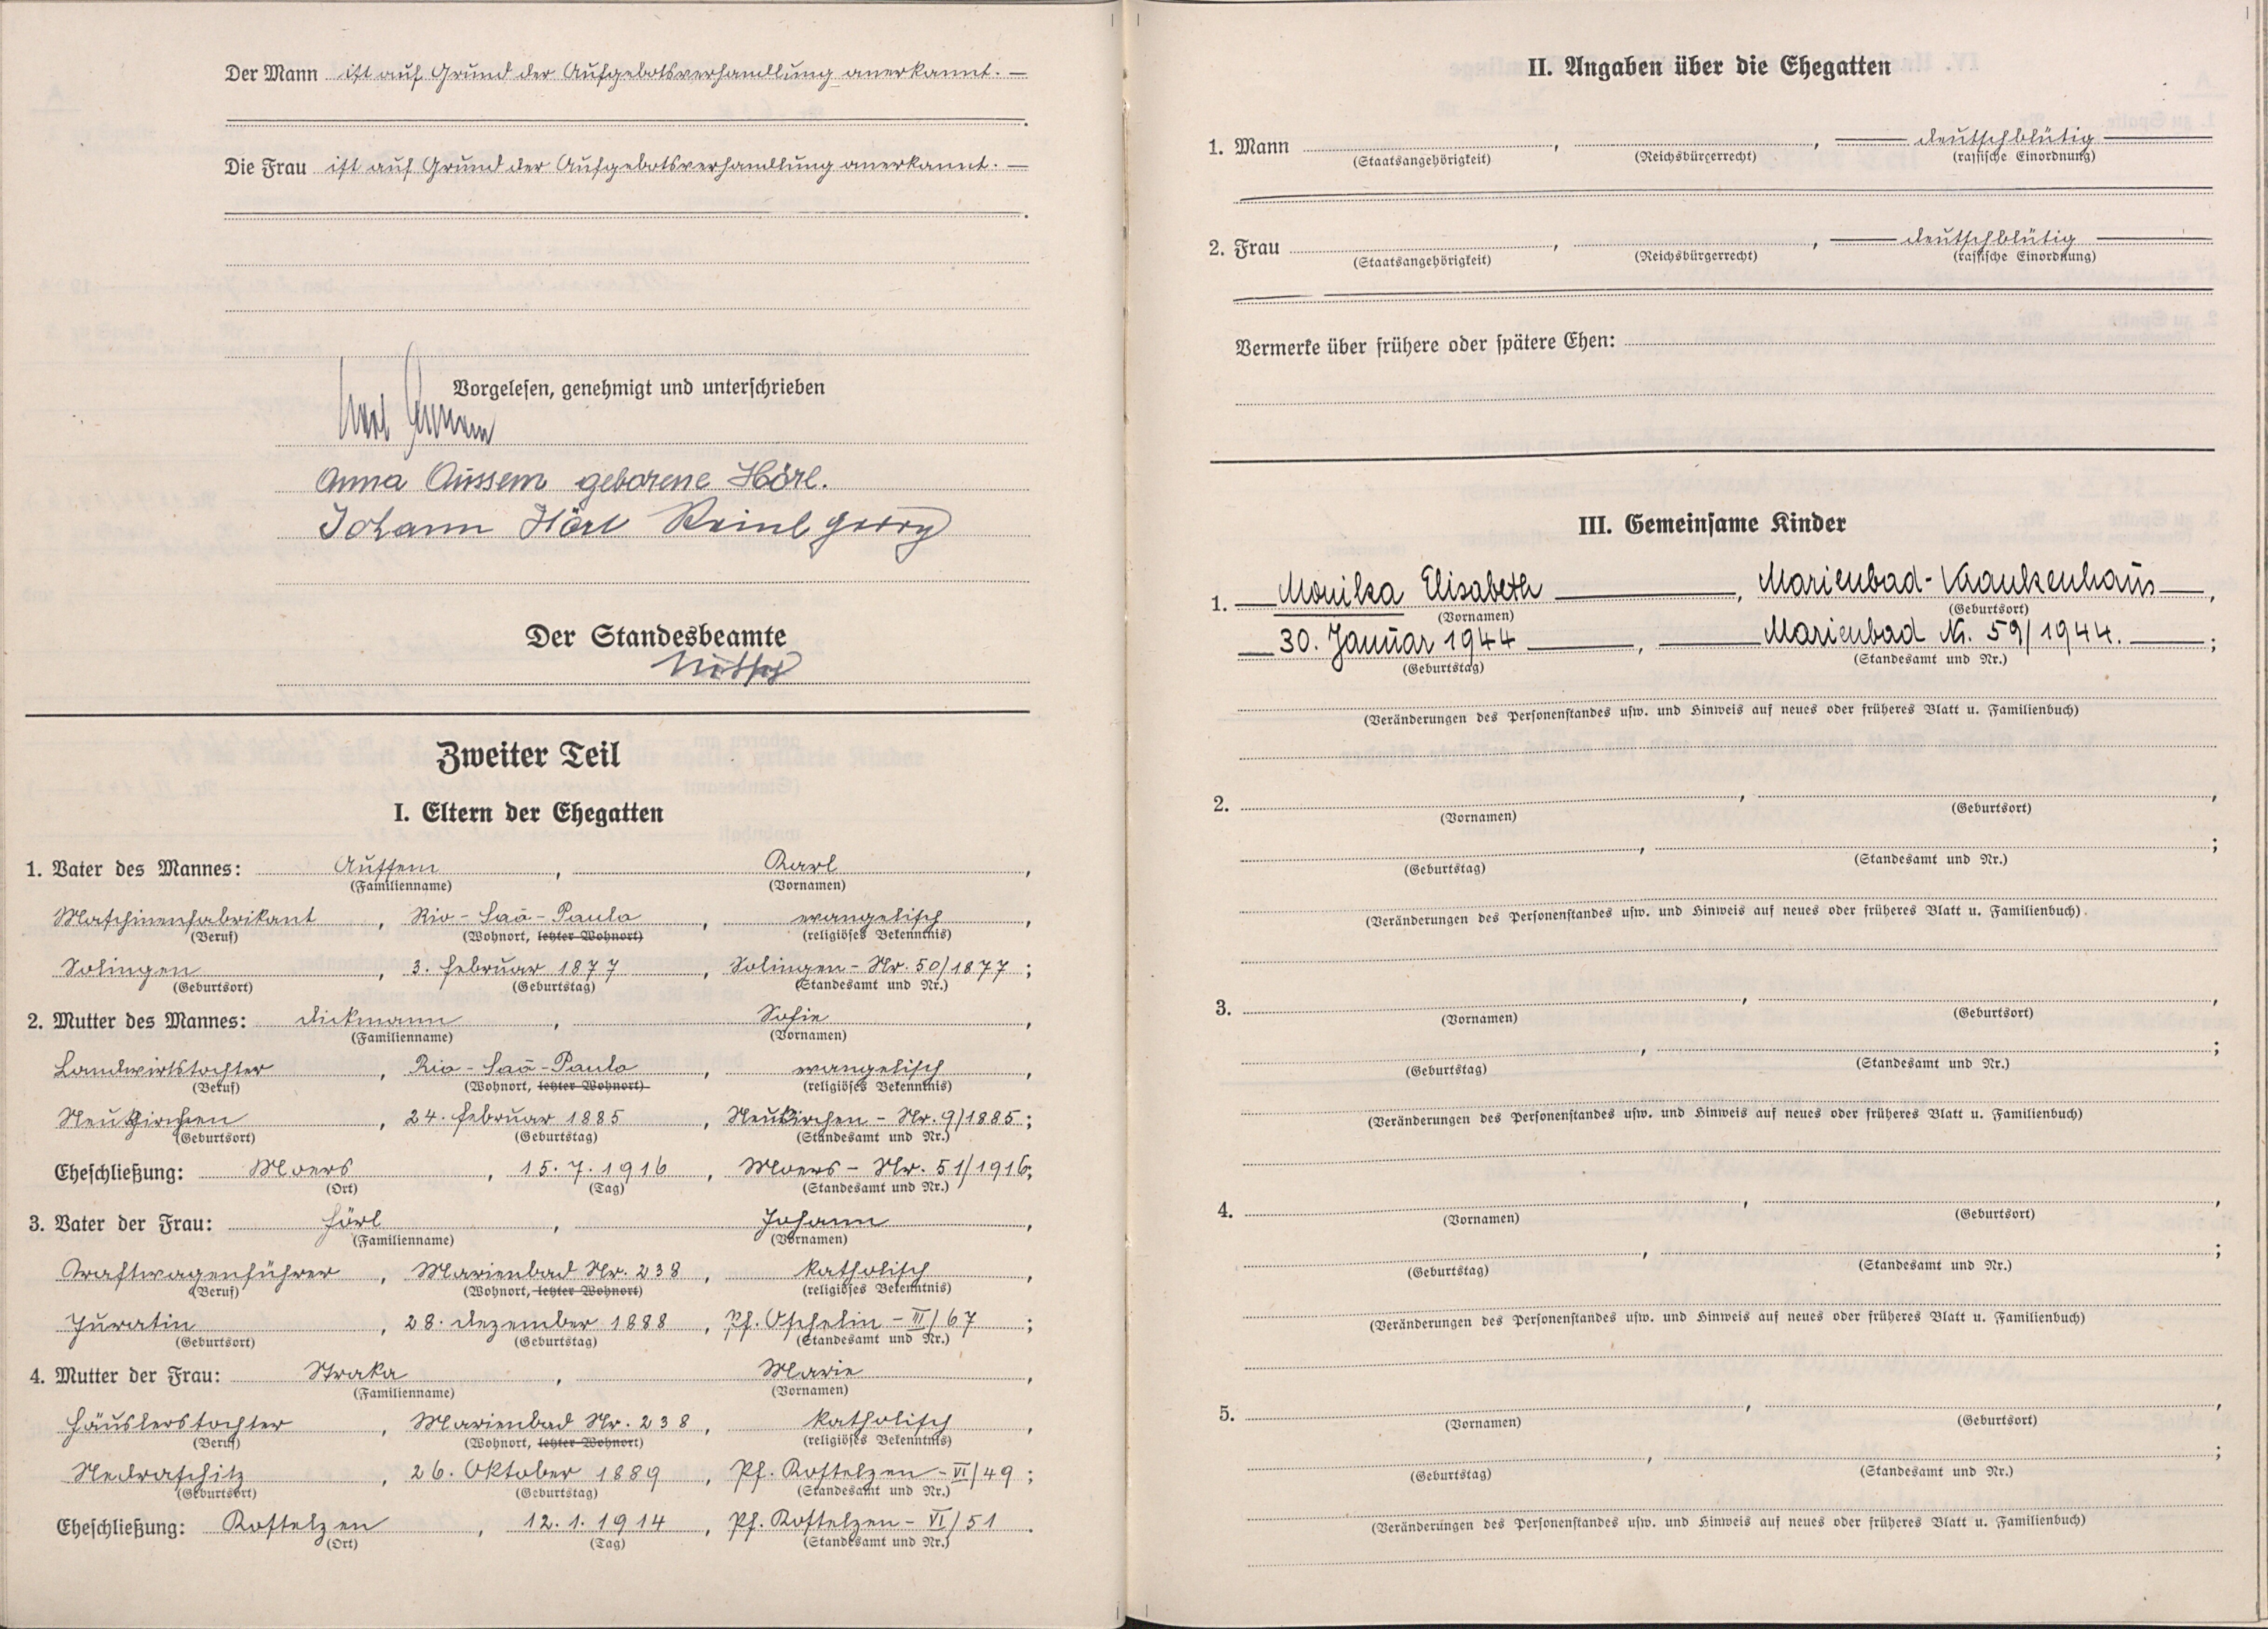 Der Mann ist auf Grund der Aufgebotsverhandlung anerkannt. —
Die Frau ist auf Grund der Aufgebotsverhandlung anerkannt. —
Vorgelesen, genehmigt und unterschrieben
Anna Aussem geborene Hörl.
Johann Hörl Georg
Der Standesbeamte
Zweiter Teil
I. Eltern der Ehegatten
1. Vater des Mannes: Aussem, Karl,
(Familienname) (Vornamen)
Maschinenfabrikant, Rio-Saõ-Paulo, evangelisch,
(Beruf) (Wohnort, letzter Wohnort) (religiöses Bekenntnis)
Solingen, 3. Februar 1877, Solingen - Nr. 50/1877;
(Geburtsort) (Geburtstag) (Standesamt und Nr.)
2. Mutter des Mannes: Dickmann, Sofie,
(Familienname) (Vornamen)
Landwirtstochter, Rio-Saõ-Paulo, evangelisch,
(Beruf) (Wohnort, letzter Wohnort) (religiöses Bekenntnis)
Neukirchen, 24. Februar 1885, Neukirchen - Nr. 9/1885;
(Geburtsort) (Geburtstag) (Standesamt und Nr.)
Eheschließung: Moers, 15.7.1916, Moers - Nr. 51/1916;
(Ort) (Tag) (Standesamt und Nr.)
3. Vater der Frau: Hörl, Johann,
(Familienname) (Vornamen)
Kraftwagenführer, Marienbad Nr. 238, katholisch,
(Beruf) (Wohnort, letzter Wohnort) (religiöses Bekenntnis)
Juratin, 28. Dezember 1888, Pf. Oschelin - III/67;
(Geburtsort) (Geburtstag) (Standesamt und Nr.)
4. Mutter der Frau: Straka, Marie,
(Familienname) (Vornamen)
Häuslerstochter, Marienbad Nr. 238, katholisch,
(Beruf) (Wohnort, letzter Wohnort) (religiöses Bekenntnis)
Nedraschitz, 26. Oktober 1889, Pf. Kostelzen - VI/49;
(Geburtsort) (Geburtstag) (Standesamt und Nr.)
Eheschließung: Kostelzen, 12.1.1914, Pf. Kostelzen - VI/51.
(Ort) (Tag) (Standesamt und Nr.)
II. Angaben über die Ehegatten
1. Mann , , — deutschblütig —
(Staatsangehörigkeit) (Reichsbürgerrecht) (rassische Einordnung)
2. Frau , , — deutschblütig —
(Staatsangehörigkeit) (Reichsbürgerrecht) (rassische Einordnung)
Vermerke über frühere oder spätere Ehen:
III. Gemeinsame Kinder
1. — Monika Elisabeth —, Marienbad-Krankenhaus —,
(Vornamen) (Geburtsort)
— 30. Januar 1944 —, — Marienbad Nr. 59/1944. —;
(Geburtstag) (Standesamt und Nr.)
(Veränderungen des Personenstandes usw. und Hinweis auf neues oder früheres Blatt u. Familienbuch)
2. , ,
(Vornamen) (Geburtsort)
, ;
(Geburtstag) (Standesamt und Nr.)
(Veränderungen des Personenstandes usw. und Hinweis auf neues oder früheres Blatt u. Familienbuch)
3. , ,
(Vornamen) (Geburtsort)
, ;
(Geburtstag) (Standesamt und Nr.)
(Veränderungen des Personenstandes usw. und Hinweis auf neues oder früheres Blatt u. Familienbuch)
4. , ,
(Vornamen) (Geburtsort)
, ;
(Geburtstag) (Standesamt und Nr.)
(Veränderungen des Personenstandes usw. und Hinweis auf neues oder früheres Blatt u. Familienbuch)
5. , ,
(Vornamen) (Geburtsort)
, ;
(Geburtstag) (Standesamt und Nr.)
(Veränderungen des Personenstandes usw. und Hinweis auf neues oder früheres Blatt u. Familienbuch)